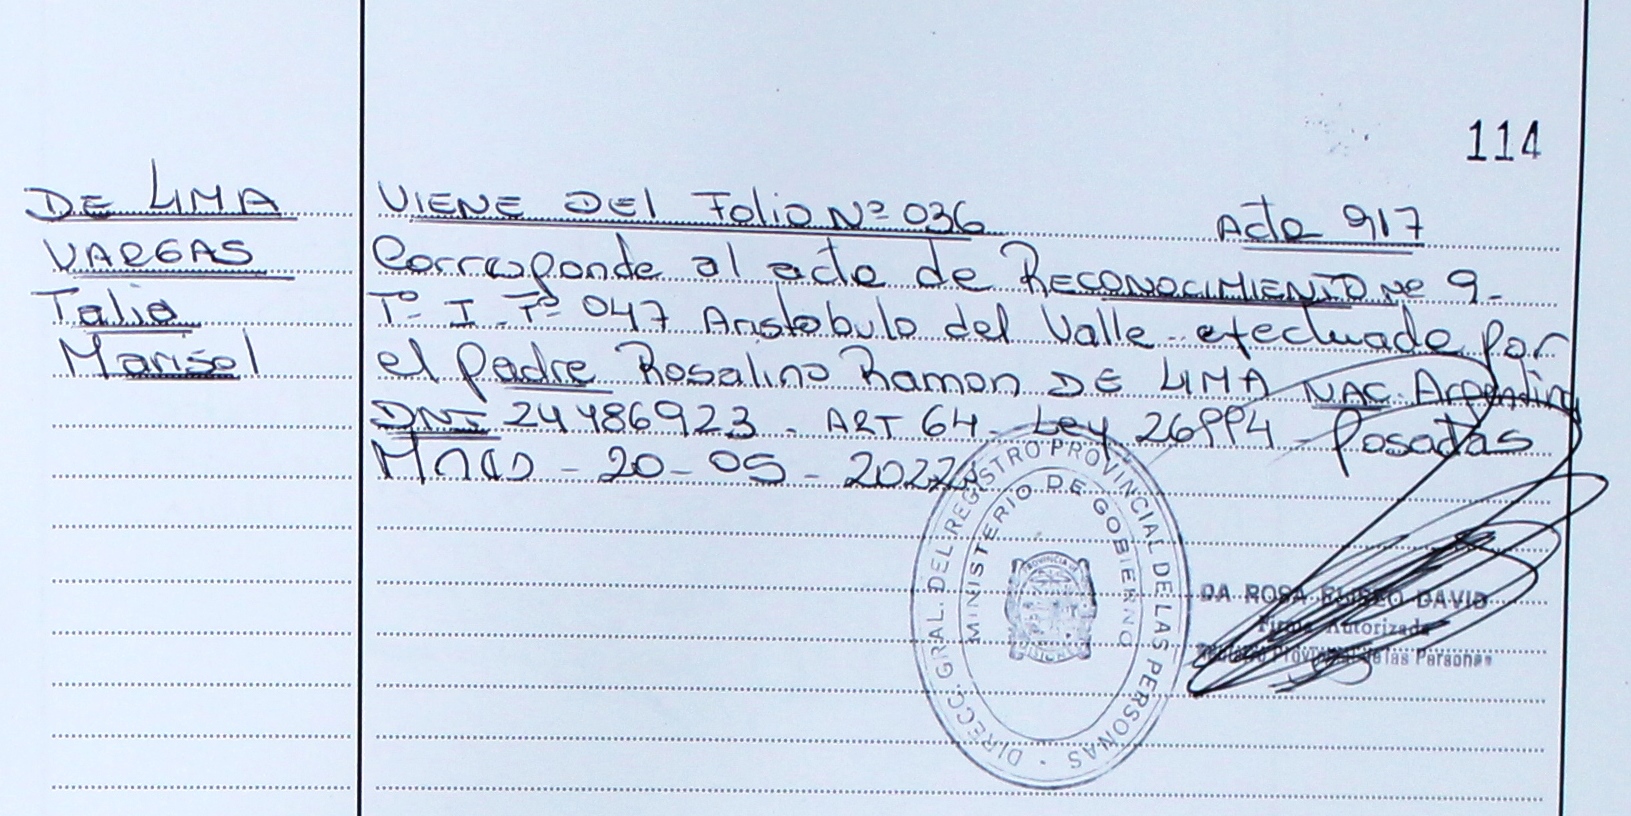 114
DE LIMA
VARGAS
Talia
Marisol
VIENE DEL Folio Nº 036 Acta 917
Corresponde al acta de RECONOCIMIENTO Nº 9-
Tº I Fº 047 Aristobulo del Valle efectuado por
el padre Rosalino Ramon DE LIMA NAC. Argentina
DNI 24486923 - ART 64 - Ley 26994 - Posadas
Mnes - 20-05-2022
DIRECC. GRAL. DEL REGISTRO PROVINCIAL DE LAS PERSONAS
MINISTERIO DE GOBIERNO
PROVINCIA DE
MISIONES
DA ROSA ELISEO DAVID
Firma Autorizada
Registro Provincial de las Personas